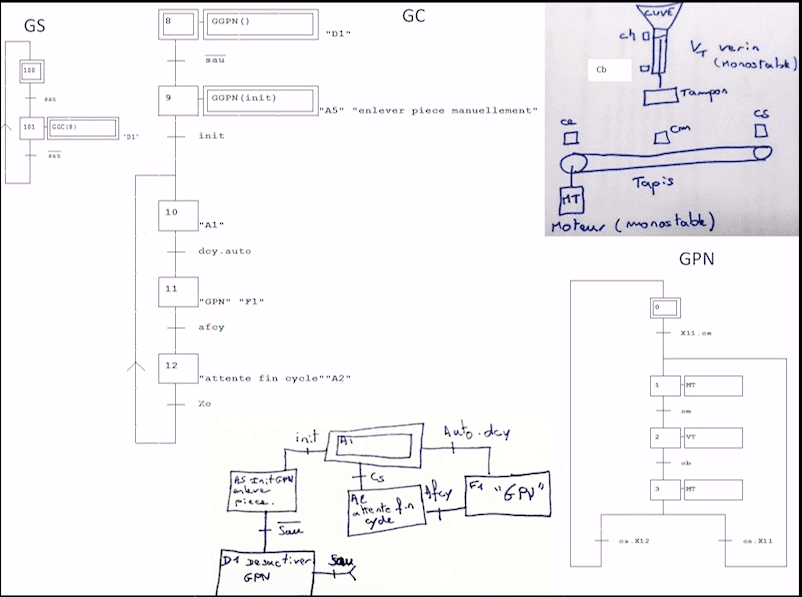 GS
100
sau
101 GGC(8)
"D1"
sau
GC
8 GGPN()
"D1"
sau
9 GGPN(init)
"A5" "enlever piece manuellement"
init
10
"A1"
dcy.auto
11
"GPN" "F1"
afcy
12
"attente fin cycle""A2"
Xo
CUVE
ch
Cb
VT verin
(monostable)
Tampon
ce
cm
cs
Tapis
MT
Moteur (monostable)
GPN
0
X11.ce
1 MT
cm
2 VT
cb
3 MT
cs.X12
cs.X11
init
A1
Auto.dcy
A5 InitGPN
enlever
piece.
Cs
A2
attente fin
cycle
Afcy
F1 "GPN"
Sau
D1 Desactiver
GPN
Sau